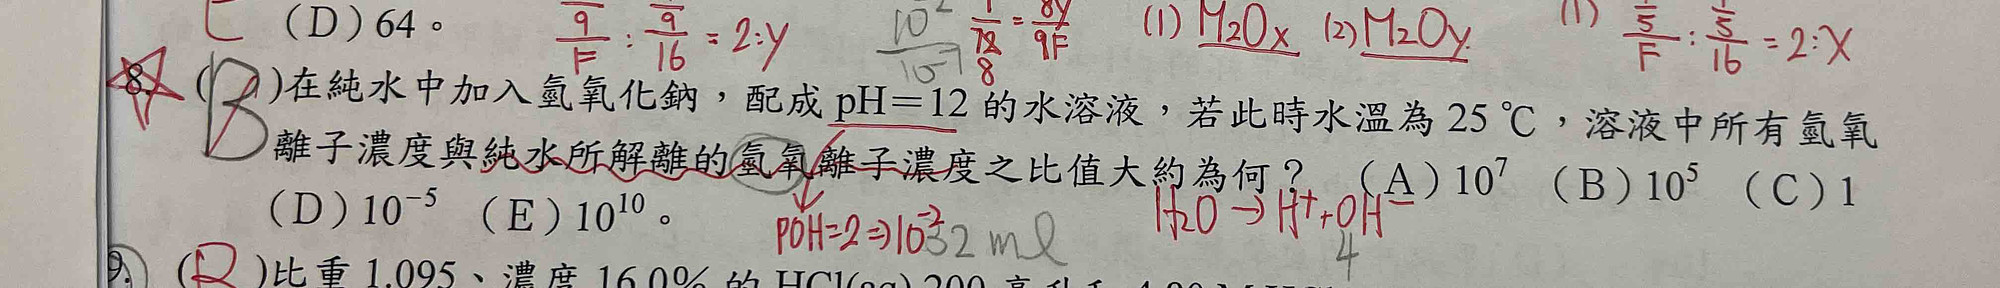 (D) 64。
9/F : 9/16 = 2:y
10² / 10⁻⁷
1/8 = 8y/9F
(1) M₂Oₓ (2) M₂Oy
(1) 5/F : 5/16 = 2:X
8. (B)在純水中加入氫氧化鈉，配成 pH＝12 的水溶液，若此時水溫為 25 ℃，溶液中所有氫氧
離子濃度與純水所解離的氫氧離子濃度之比值大約為何？ (A) 10⁷ (B) 10⁵ (C) 1
(D) 10⁻⁵ (E) 10¹⁰。
POH=2⇒10⁻² 32 ml
H₂O → H⁺+OH⁻
4
9. ( )比重 1.095、濃度 16.0% 的 HCl(aq) 200 毫升和